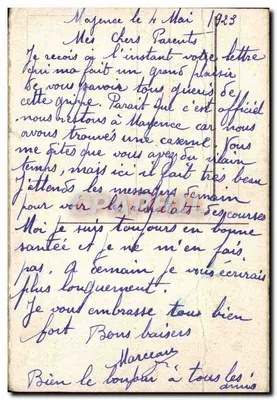 Mayence le 4 Mai 1923
Mes Chers Parents
Je reçois à l'instant votre lettre
qui ma fait un grand plaisir
de vous savoir tous gueris de
cette grippe. Parait que c'est officiel
nous restons à Mayence car nous
avons trouvés une caserne. Vous
me dites que vous avez du vilain
temps, mais ici il fait très beau
j'attends les messagers demain
pour voir les résultats des courses
Moi je suis toujours en bonne
santée et je ne m'en fais
pas. A demain je vous ecrirais
plus longuement.
Je vous embrasse tous bien
fort Bons baisers
Marceau
Bien le bonjour à tous les
amis